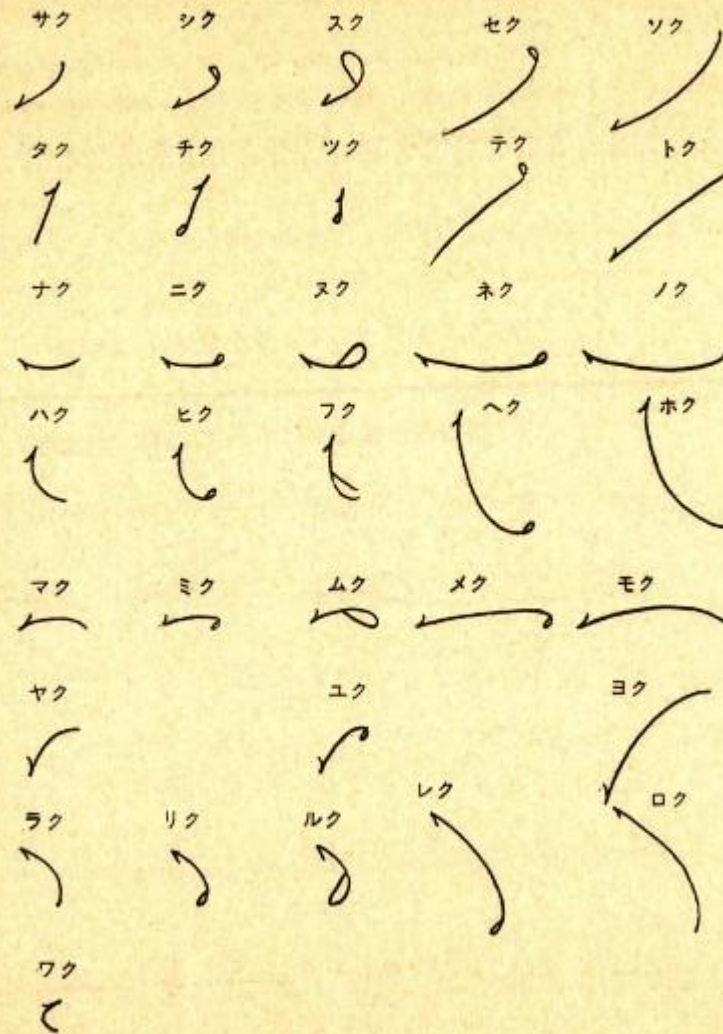 サク シク スク セク ソク
タク チク ツク テク トク
ナク ニク ヌク ネク ノク
ハク ヒク フク ヘク ホク
マク ミク ムク メク モク
ヤク ユク ヨク
ラク リク ルク レク ロク
ワク